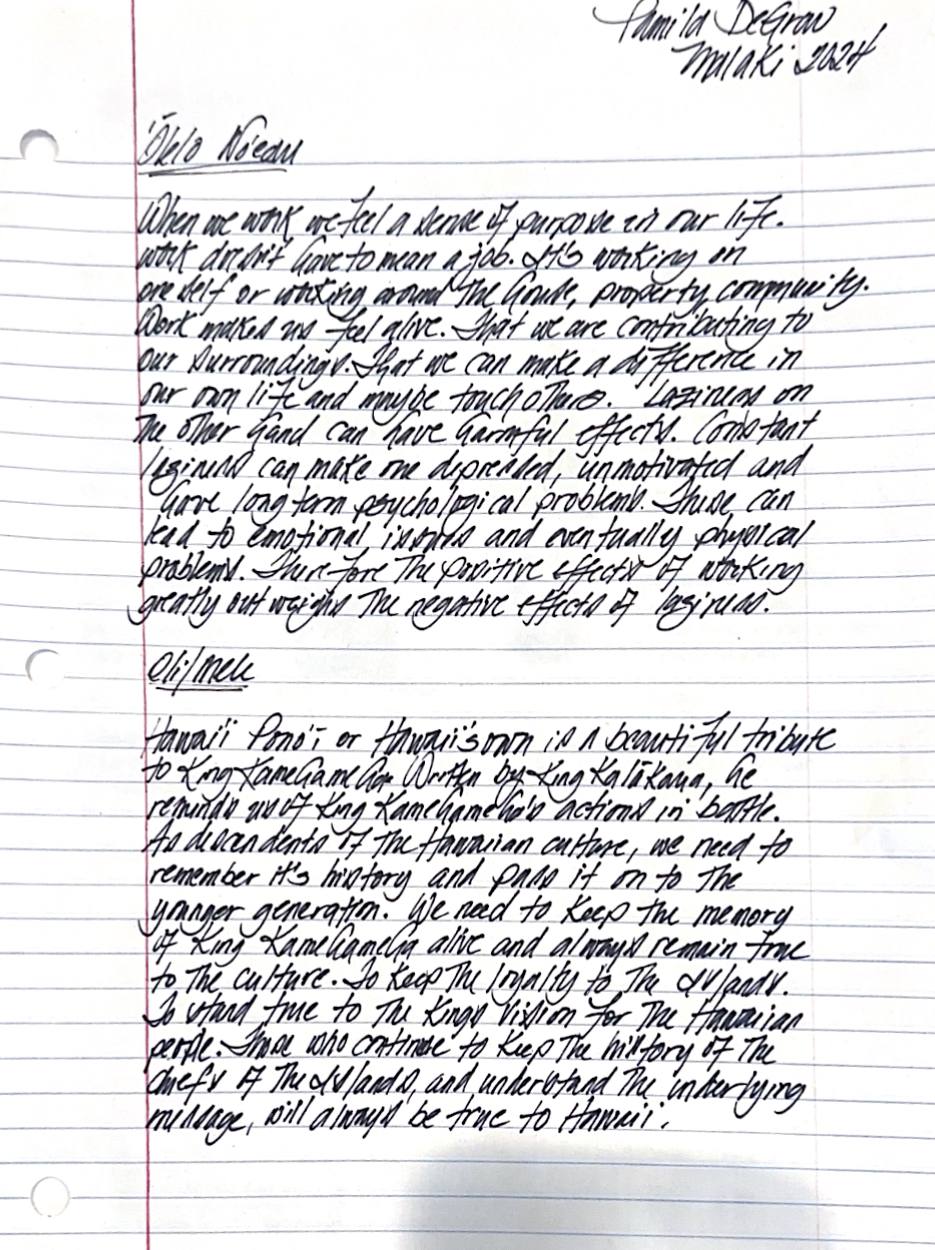 Pamila DeGraw
Malaki 2024
'Ōlelo No'eau
When we work we feel a sense of purpose in our life.
work doesn't have to mean a job. It's working on
oneself or working around the house, property community.
Work makes us feel alive. That we are contributing to
our surroundings. That we can make a difference in
our own life and maybe touch others. Laziness on
the other hand can have harmful effects. Constant
laziness can make one depressed, unmotivated and
have long term psychological problems. These can
lead to emotional issues and eventually physical
problems. Therefore the positive effects of working
greatly out weighs the negative effects of laziness.
Oli/Mele
Hawai'i Pono'ī or Hawaii's own is a beautiful tribute
to King Kamehameha. Written by King Kalākaua, he
reminds us of King Kamehameha's actions in battle.
As descendents of the Hawaiian culture, we need to
remember it's history and pass it on to the
younger generation. We need to keep the memory
of King Kamehameha alive and always remain true
to the culture. To keep the loyalty to the islands.
To stand true to the Kings vision for the Hawaiian
people. Those who continue to keep the history of the
chiefs of the islands, and understand the underlying
message, will always be true to Hawaii.